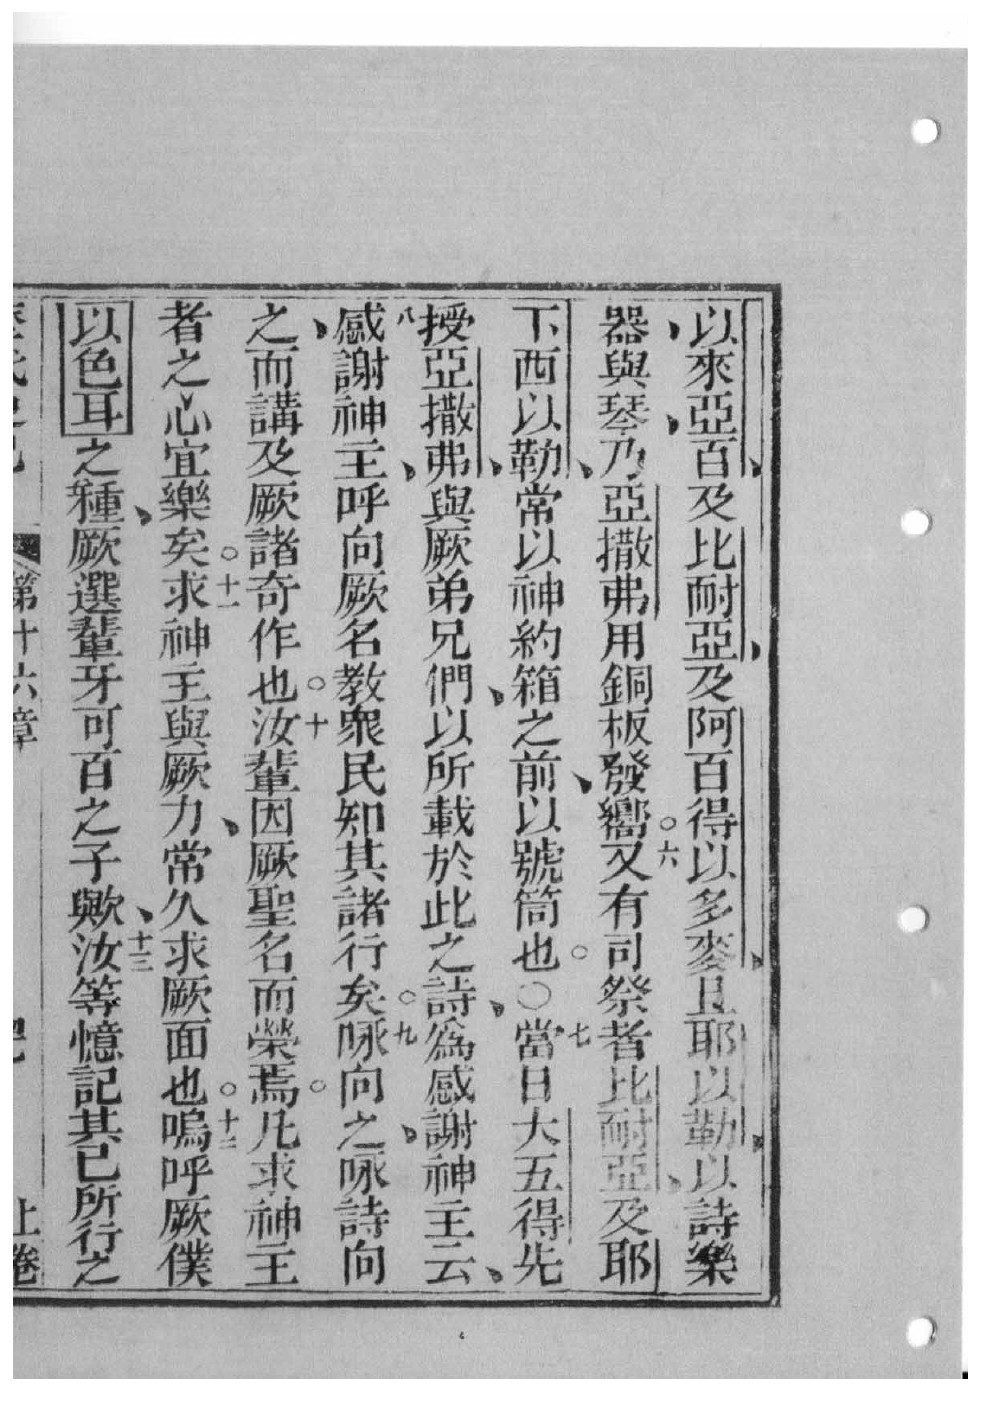 以來亞百及比耐亞及阿百得以多麥且耶以勒以詩樂
器與琴乃亞撒弗用銅板發嚮○六又有司祭者比耐亞及耶
下西以勒常以神約箱之前以號筒也○〇七當日大五得先
授亞撒弗與厥弟兄們以所載於此之詩為感謝神主云
八感謝神主呼向厥名教衆民知其諸行矣○九咏向之咏詩向
之而講及厥諸奇作也○十汝輩因厥聖名而榮焉○凡求神主
者之心宜樂矣○十一求神主與厥力常久求厥面也○十二嗚呼厥僕
以色耳之種厥選輩牙可百之子歟十三汝等憶記其已所行之
第十六章 上卷